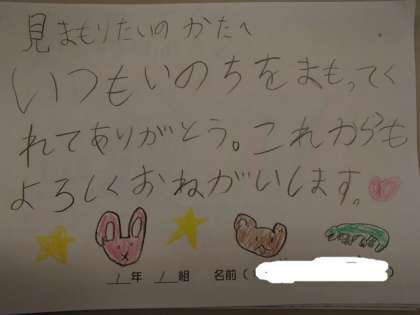 見まもりたいの かたへ
いつもいのちをまもってく
れてありがとう。これからも
よろしくおねがいします。
1年 1組 名前(